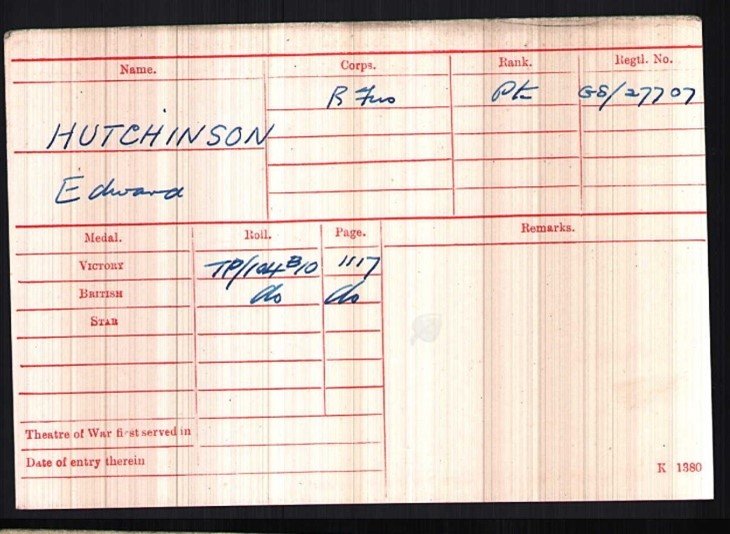 Name. Corps. Rank. Regtl. No.
R Fus Pte GS/27707
HUTCHINSON
Edward
Medal. Roll. Page. Remarks.
VICTORY TP/104 B10 1117
BRITISH do do
STAR
Theatre of War first served in
Date of entry therein
K 1380